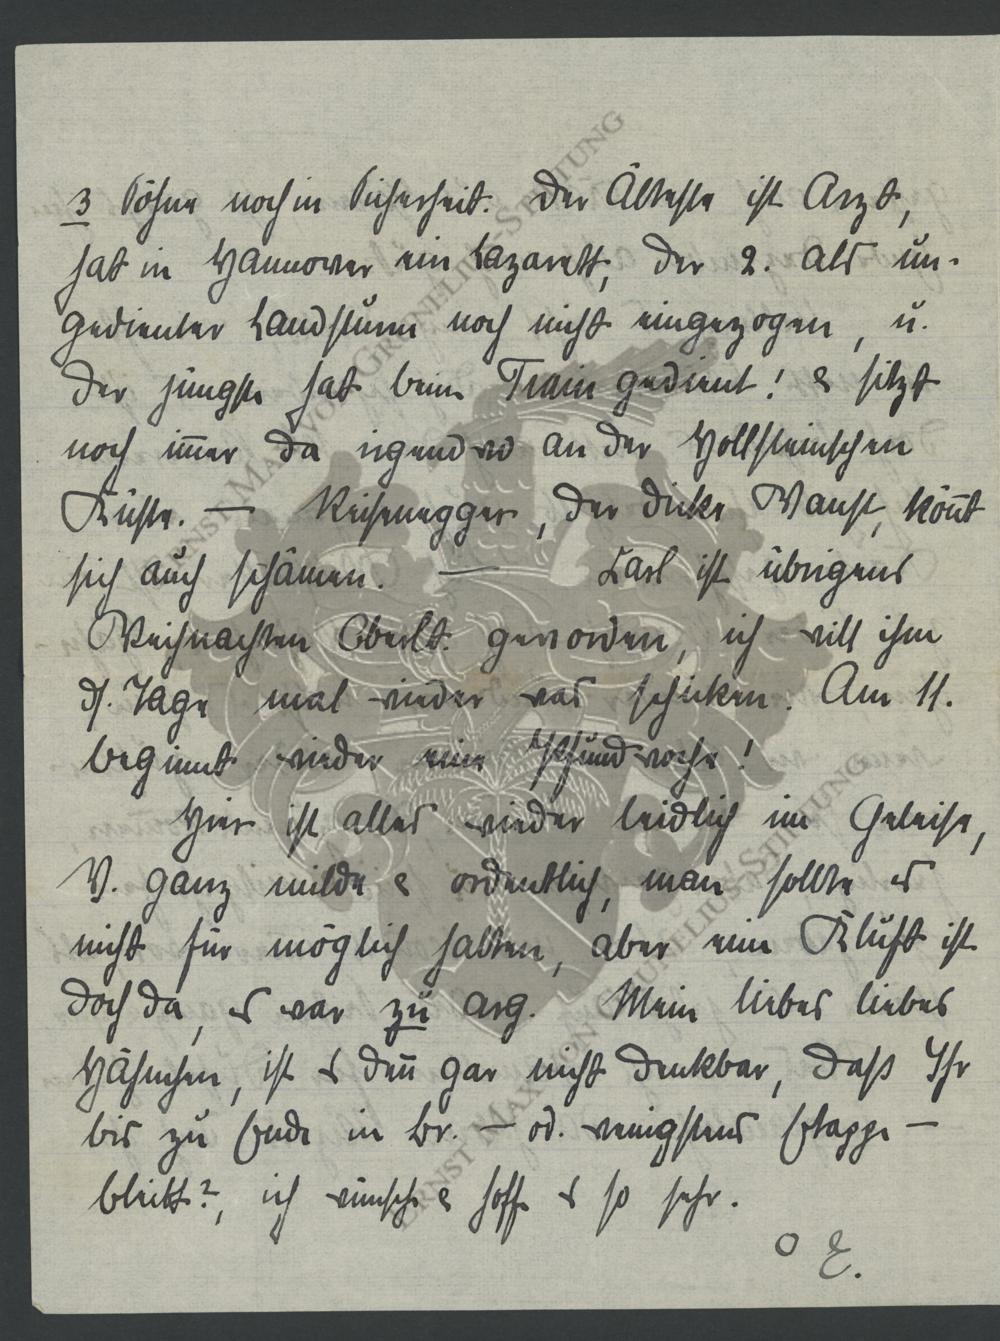 3 Söhne noch in Sicherheit. Der Älteste ist Arzt,
hat in Hannover ein Lazarett, der 2. als un-
gedienter Landsturm noch nicht eingezogen, u.
der jüngste hat beim Train gedient! & sitzt
noch im̅er da irgendwo an der Hollsteinschen
Küste. — Reisenegger, der dicke Wanst, kön̅t
sich auch schämen. — Karl ist übrigens
Weihnachten Oberlt. geworden, ich will ihm
d. Tage mal wieder was schicken. Am 11.
beginnt wieder eine Pfundwoche!
Hier ist alles wieder leidlich im Geleise,
V. ganz milde & ordentlich, man sollte es
nicht für möglich halten, aber eine Kluft ist
doch da, es war zu arg. Mein liebes liebes
Hähnchen, ist es den̅ gar nicht denkbar, daß Ihr
bis zu Ende in Br. — od. wenigstens Etappe —
bleibt?, ich wünsche & hoffe es so sehr.
O E.
ERNST MAX VON GRUNELIUS-STIFTUNG
ERNST MAX VON GRUNELIUS-STIFTUNG